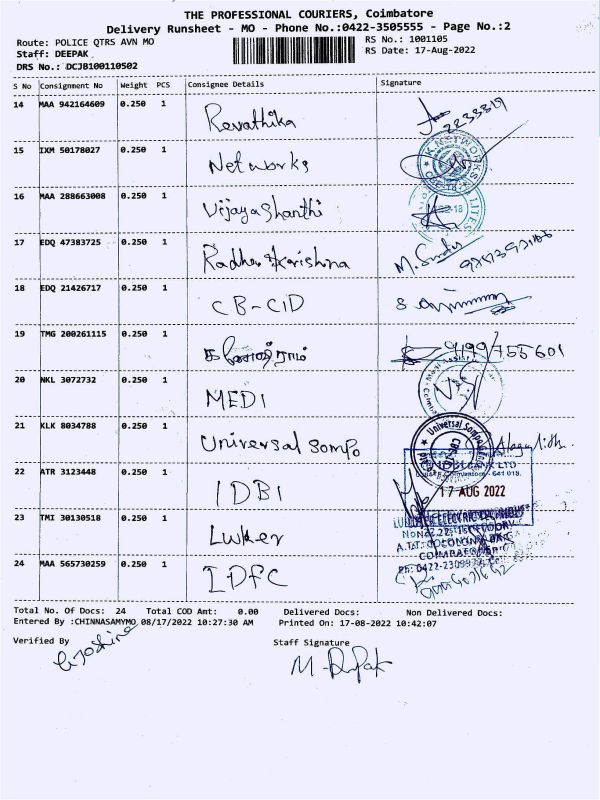 THE PROFESSIONAL COURIERS, Coimbatore
Delivery Runsheet - MO - Phone No.:0422-3505555 - Page No.:2
Route: POLICE QTRS AVN MO
RS No.: 1001105
Staff: DEEPAK
RS Date: 17-Aug-2022
DRS No.: DCJB100110502
S No Consignment No Weight PCS Consignee Details Signature
14 MAA 942164609 0.250 1 Revathika
15 IXM 50178027 0.250 1 Networks
16 MAA 288663008 0.250 1 Vijayashanthi
17 EDQ 47383725 0.250 1 Radha
18 EDQ 21426717 0.250 1 CB-CID
19 TMG 200261115 0.250 1
20 NKL 3072732 0.250 1 MEDI
21 KLK 8034788 0.250 1 Universal Sompo
22 ATR 3123448 0.250 1 IDBI 17 AUG 2022
23 TMI 30130518 0.250 1
24 MAA 565730259 0.250 1 IDFC
Total No. Of Docs: 24 Total COD Amt: 0.00 Delivered Docs: Non Delivered Docs:
Entered By :CHINNASAMYMO 08/17/2022 10:27:30 AM Printed On: 17-08-2022 10:42:07
Verified By Staff Signature